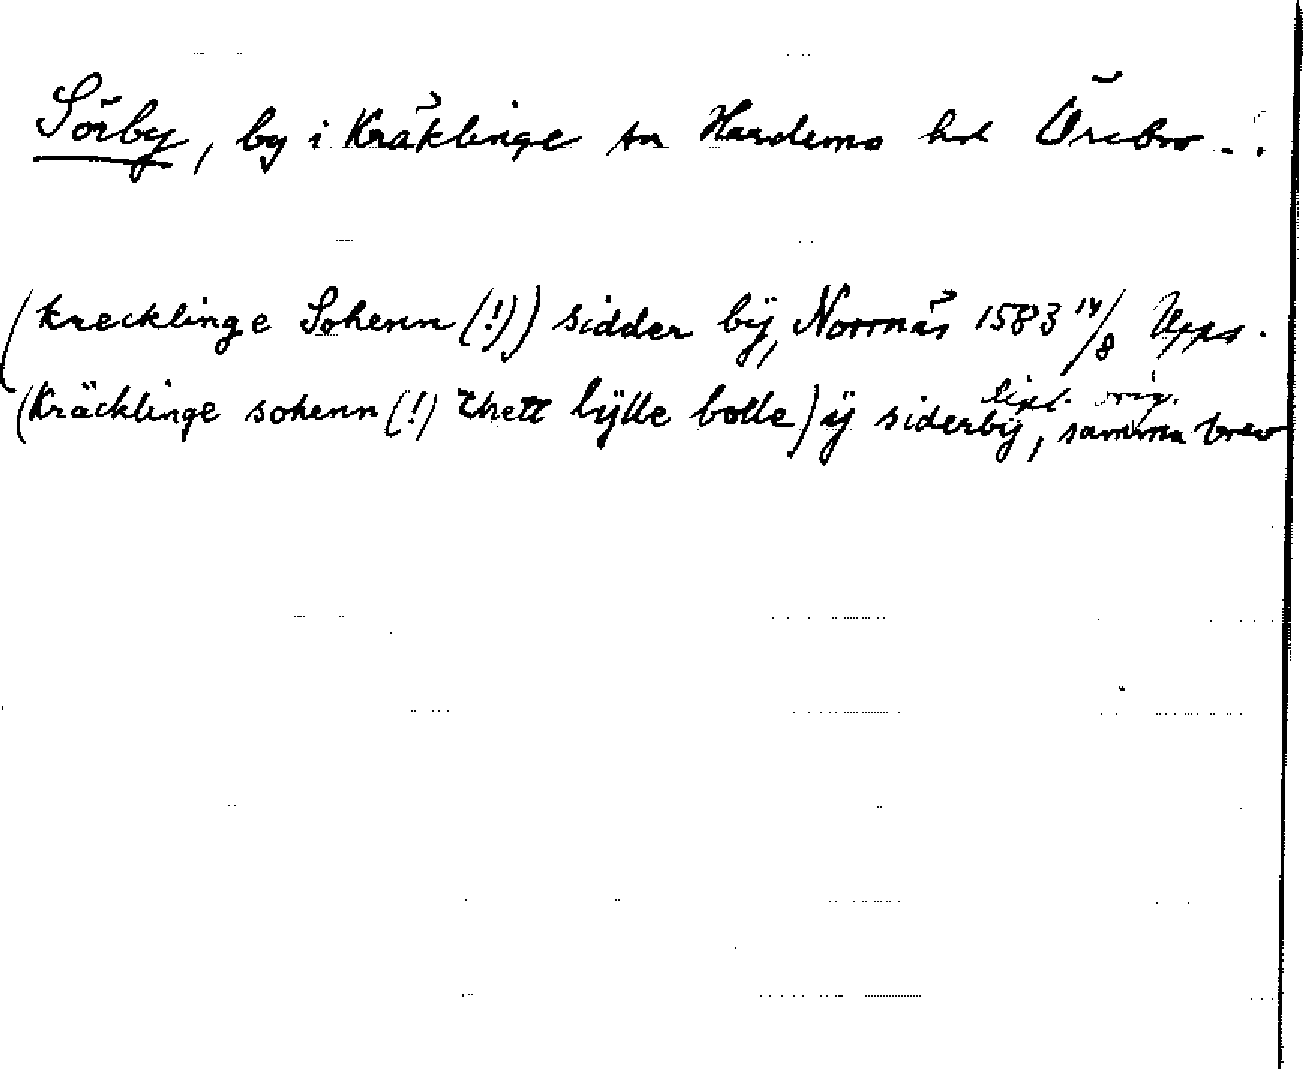 Sörby, by i Kräklinge sn Hardemo hd Örebro l.
(krecklinge Sohenn (!)) sidder bÿ, Norrnäs 1583 14/8 Upps.
bibl. orig.
(Kräcklinge sohenn (!) thett hÿlle bolle) ÿ siderbÿ, samma brev